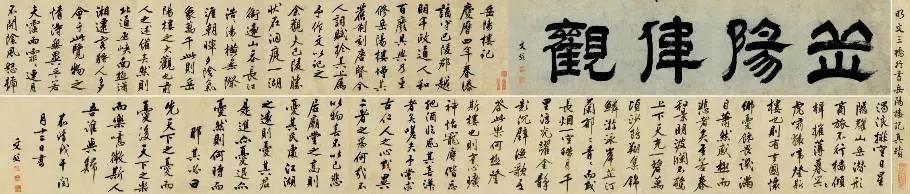 明文三橋行書岳陽樓記真蹟
岳陽偉觀
文彭
岳陽樓記
慶曆四年春滕
謫守巴陵郡越
明年政通人和
百廢具興乃重
修岳陽樓增其
舊制刻唐賢今
人詞賦於其上屬
予作文以記之
予觀夫巴陵勝
狀在洞庭一湖
銜遠山吞長江
浩浩湯湯橫無際
涯朝暉夕陰氣
象萬千此則岳
陽樓之大觀也前
人之述備矣然則
北通巫峽南極瀟
湘遷客騷人多
會于此覽物之
情得無異乎若
夫霪雨霏霏連月
不開陰風怒號
濁浪排空日星
隱耀山岳潛形
商旅不行檣傾
楫摧薄暮冥冥
虎嘯猿啼登斯
樓也則有去國懷
鄉憂讒畏譏滿
目蕭然感極而
悲者矣至若春
和景明波瀾不驚
上下天光一碧萬
頃沙鷗翔集錦
鱗游泳岸芷汀
蘭郁郁青青而或
長烟一空皓月千
里浮光躍金靜
影沉璧漁歌互
答此樂何極登
斯樓也則有心曠
神怡寵辱偕忘
把酒臨風其喜洋洋
者矣嗟夫予嘗求
古仁人之心或異
二者之為何哉不
以物喜不以己悲
居廟堂之高則
憂其民處江湖
之遠則憂其君
是進亦憂退亦
憂然則何時而樂
耶其必曰
先天下之憂而
憂後天下之樂
而樂歟噫微斯人
吾誰與歸
嘉靖戊午閏
月十三日書
文彭